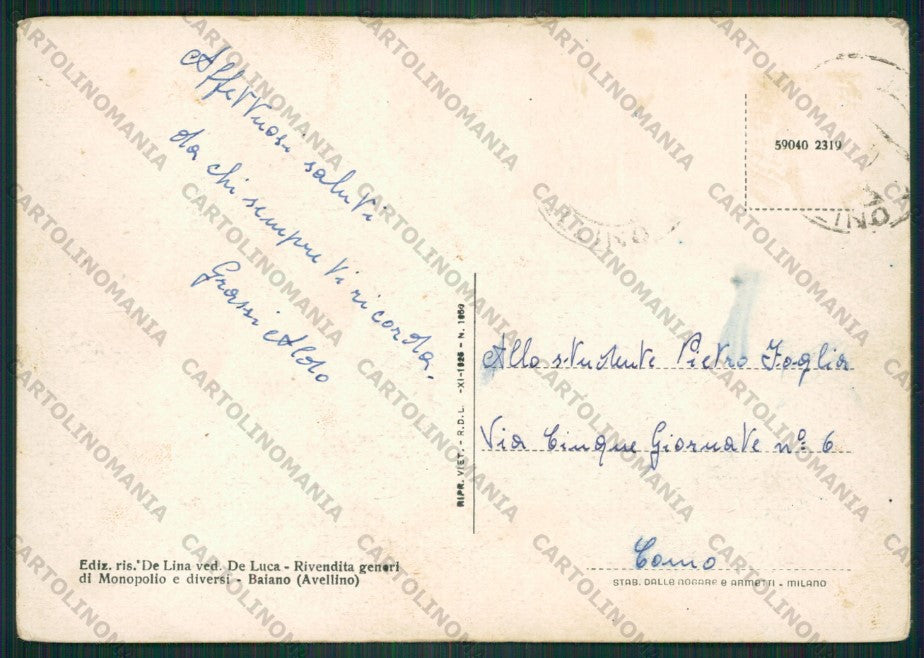 Affettuosi saluti
da chi sempre Vi ricorda.
Grassi Aldo
59040 2319
RIPR. VIET. - R.D.L. -XI-1925 - N. 1950
Allo studente Pietro Foglia
Via Cinque Giornate n.º 6
Como
STAB. DALLE NOGARE e ARMETTI - MILANO
Ediz. ris. De Lina ved. De Luca - Rivendita generi
di Monopolio e diversi - Baiano (Avellino)
CARTOLINOMANIA